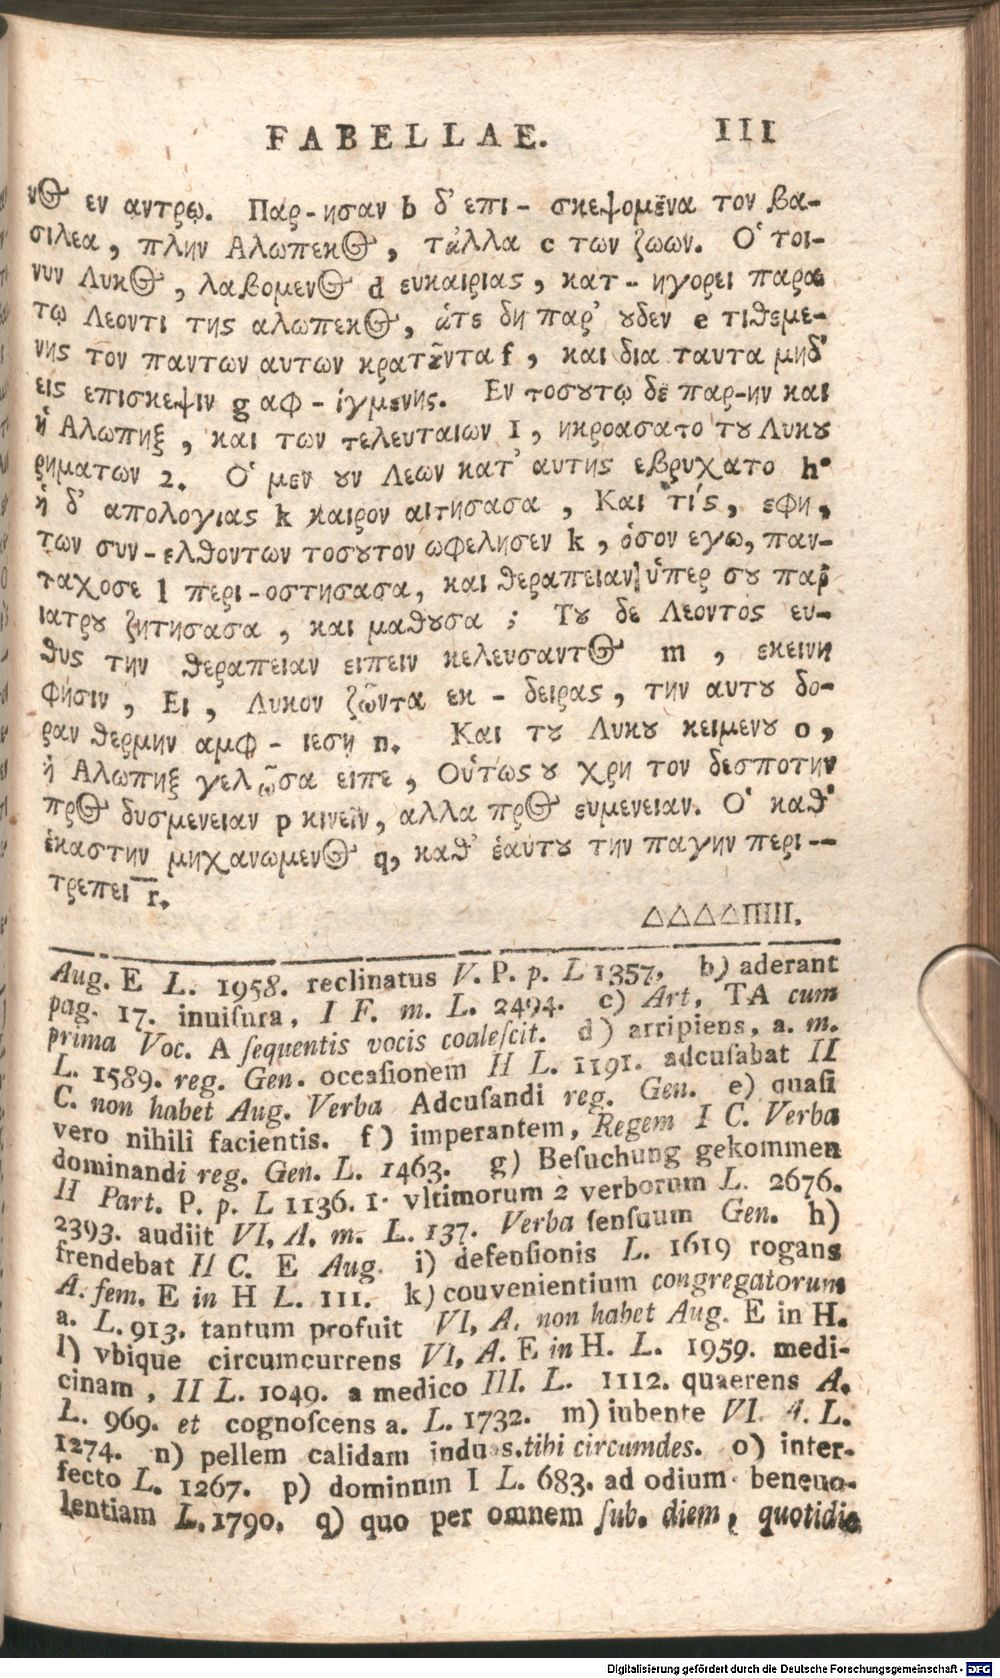 FABELLAE. III
νος εν αντρῳ. Παρ-ησαν b δ' επι- σκεψομε͂να τον βα-
σιλεα, πλην Αλωπεκος, τἀλλα c των ζωων. Ὁ τοι-
νυν Λυκος, λαβομενος d ευκαιριας, κατ-ηγορει παρα
τῳ Λεοντι της αλωπεκος, ἁτε δη παρ' ουδεν e τιθεμε-
νης τον παντων αυτων κρατοῦντα f, και δια ταυτα μηδ'
εις επισκεψιν g αφ-ἱγμενης. Εν τοσουτῳ δε παρ-ην και
ἡ Αλωπηξ, και των τελευταιων 1, ηκροασατο του Λυκου
ρηματων 2. Ὁ μεν ουν Λεων κατ' αυτης εβρυχατο h·
ἡ δ' απολογιας k καιρον αιτησασα, Και τίς, εφη,
των συν-ελθοντων τοσουτον ωφελησεν k, ὁσον εγω, παν-
ταχοσε l περι-οστησασα, και θεραπειαν ὑπερ σου παρ
ιατρου ζητησασα, και μαθουσα; Του δε Λεοντος ευ-
θυς την θεραπειαν ειπειν κελευσαντος m, εκεινη
φησιν, Ει, Λυκον ζῶντα εκ-δειρας, την αυτου δο-
ραν θερμην αμφ-ιεσῃ n. Και του Λυκου κειμενου o,
ἡ Αλωπηξ γελῶσα ειπε, Οὑτως ου χρη τον δεσποτην
προς δυσμενειαν p κινεῖν, αλλα προς ευμενειαν. Ὁ καθ'
ἑκαστην μηχανωμενος q, καθ' ἑαυτου την παγην περι--
τρεπει r.
△△△△ΠΙΙΙΙ.
Aug. E L. 1958. reclinatus V. P. p. L 1357, b) aderant
pag. 17. inuiſura, I F. m. L. 2494. c) Art. TA cum
prima Voc. A ſequentis vocis coaleſcit. d) arripiens, a. m.
L. 1589. reg. Gen. occaſionem II L. 1191. adcuſabat II
C. non habet Aug. Verba Adcuſandi reg. Gen. e) quaſi
vero nihili facientis. f) imperantem, Regem I C. Verba
dominandi reg. Gen. L. 1463. g) Beſuchung gekommen
II Part. P. p. L 1136. 1· vltimorum 2 verborum L. 2676.
2393. audiit VI, A. m. L. 137. Verba ſenſuum Gen. h)
frendebat II C. E Aug. i) defenſionis L. 1619 rogans
A. fem. E in H L. 111. k) couvenientium congregatorum
a. L. 913. tantum profuit VI, A. non habet Aug. E in H.
l) vbique circumcurrens VI, A. E in H. L. 1959. medi-
cinam, II L. 1049. a medico III. L. 1112. quaerens A.
L. 969. et cognoſcens a. L. 1732. m) iubente VI. A. L.
1274. n) pellem calidam induas. tibi circumdes. o) inter-
fecto L. 1267. p) dominum I L. 683. ad odium beneuo-
lentiam L. 1790. q) quo per omnem ſub. diem, quotidie
Digitalisierung gefördert durch die Deutsche Forschungsgemeinschaft - DFG